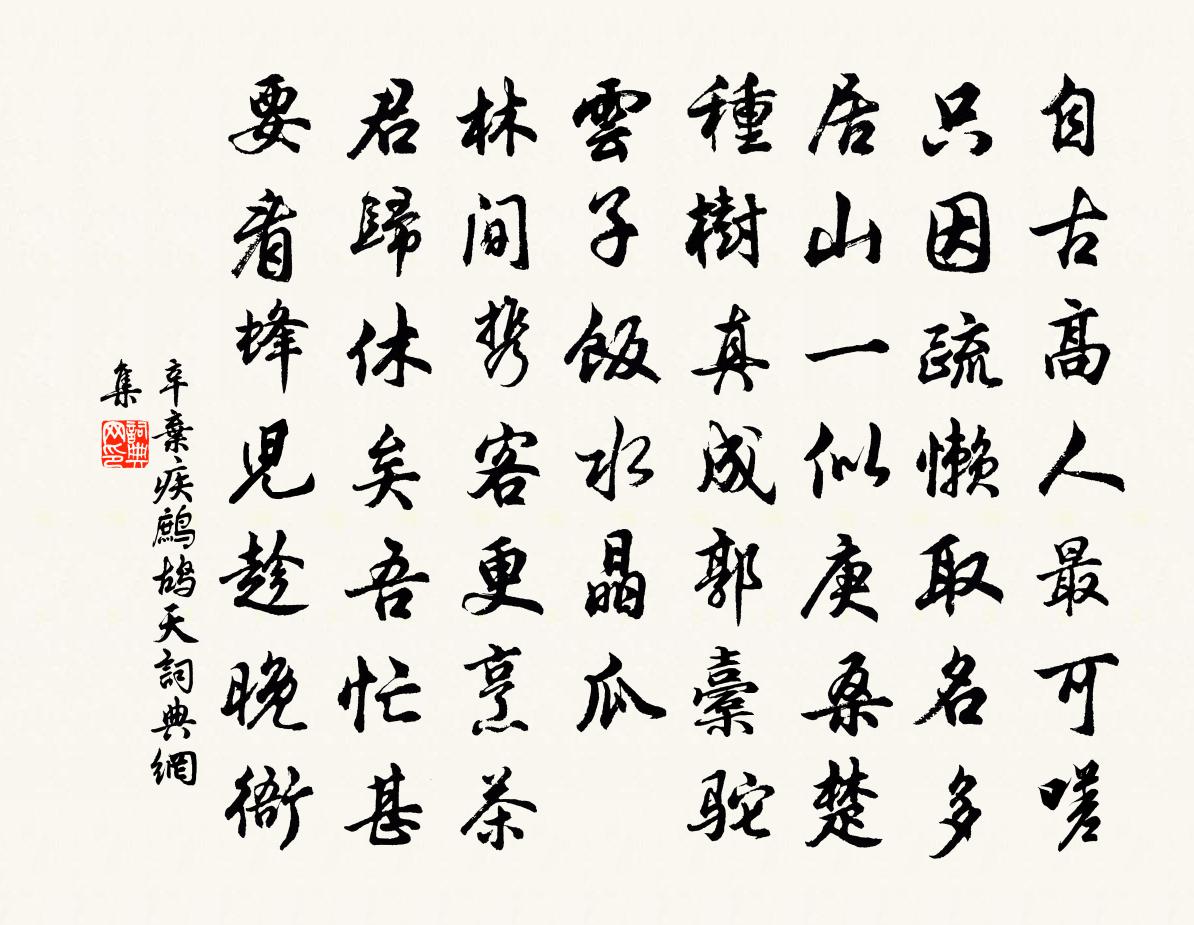 自古高人最可嗟
只因疏懶取名多
居山一似庚桑楚
種樹真成郭橐駝
雲子飯水晶瓜
林間携客更烹茶
君歸休矣吾忙甚
要看蜂兒趁晚衙
辛棄疾鷓鴣天詞典網
集
詞典网印